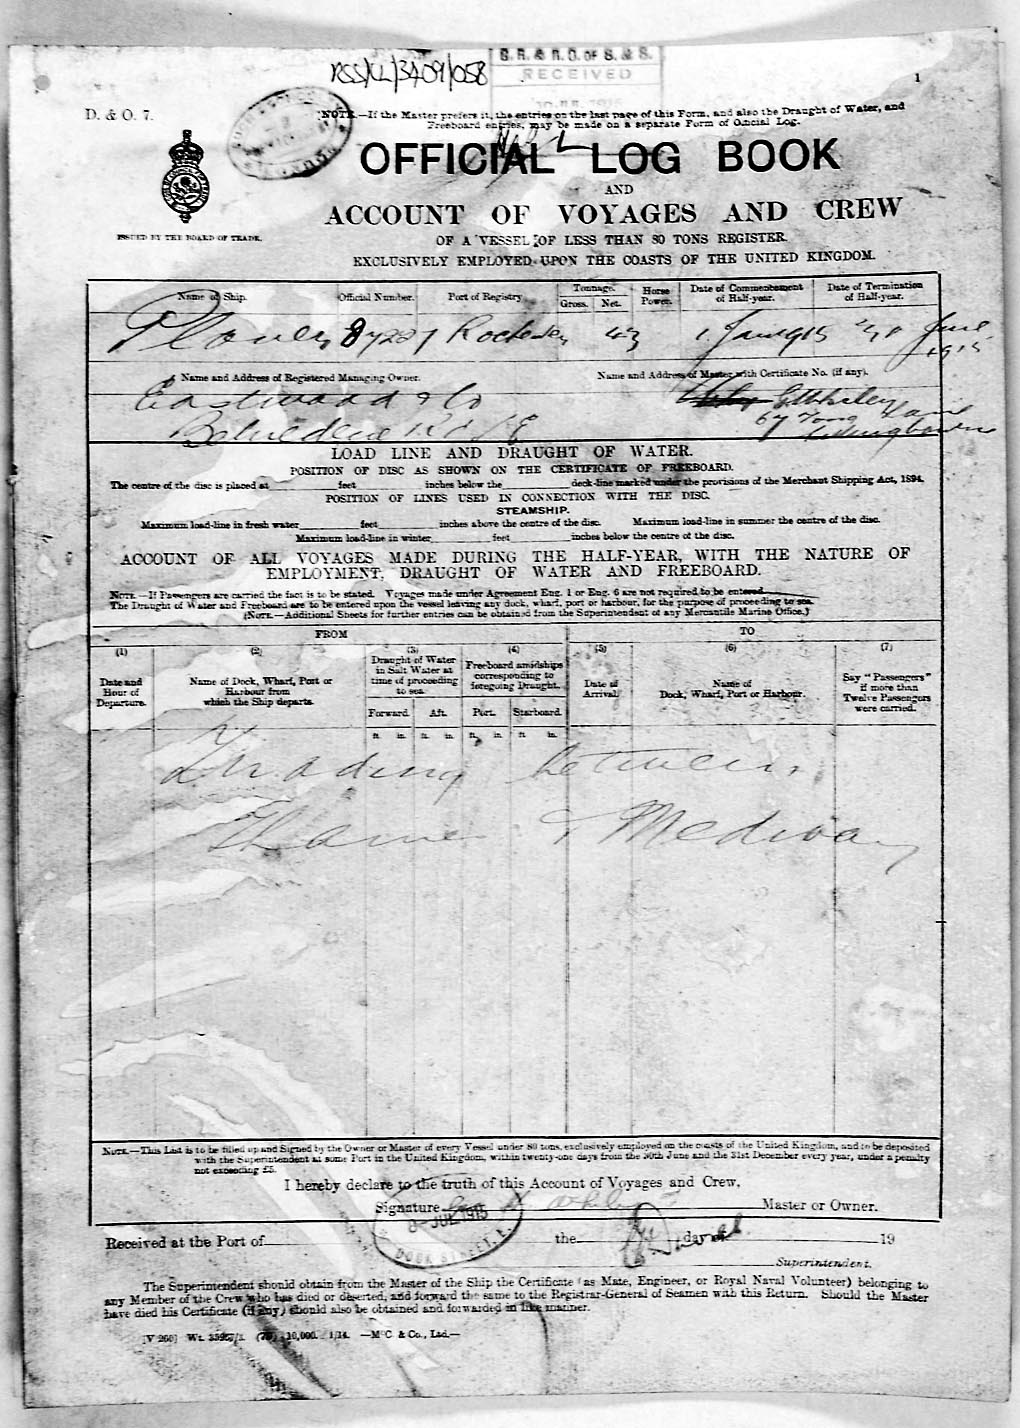 RSS/CL/3409/058
G. R. & R. O. OF S. & S.
RECEIVED
1
D. & O. 7.
NOTE.—If the Master prefers it, the entries on the last page of this Form, and also the Draught of Water, and
Freeboard entries, may be made on a separate Form of Official Log.
OFFICIAL LOG BOOK
AND
ACCOUNT OF VOYAGES AND CREW
ISSUED BY THE BOARD OF TRADE.
OF A VESSEL OF LESS THAN 80 TONS REGISTER
EXCLUSIVELY EMPLOYED UPON THE COASTS OF THE UNITED KINGDOM.
Name of Ship. Official Number. Port of Registry. Tonnage. Gross. Net. Horse Power. Date of Commencement of Half-year. Date of Termination of Half-year.
Plover 87227 Rochester 43 1 Jan 1915 June 1915
Name and Address of Registered Managing Owner. Name and Address of Master with Certificate No. (if any).
Eastwood & Co
Belvedere Rd SE 67 Tong Lane
LOAD LINE AND DRAUGHT OF WATER.
POSITION OF DISC AS SHOWN ON THE CERTIFICATE OF FREEBOARD.
The centre of the disc is placed at feet inches below the deck-line marked under the provisions of the Merchant Shipping Act, 1894.
POSITION OF LINES USED IN CONNECTION WITH THE DISC.
STEAMSHIP.
Maximum load-line in fresh water feet inches above the centre of the disc. Maximum load-line in summer the centre of the disc.
Maximum load-line in winter feet inches below the centre of the disc.
ACCOUNT OF ALL VOYAGES MADE DURING THE HALF-YEAR, WITH THE NATURE OF
EMPLOYMENT, DRAUGHT OF WATER AND FREEBOARD.
NOTE.—If Passengers are carried the fact is to be stated. Voyages made under Agreement Eng. 1 or Eng. 6 are not required to be entered.
The Draught of Water and Freeboard are to be entered upon the vessel leaving any dock, wharf, port or harbour, for the purpose of proceeding to sea.
(NOTE.—Additional Sheets for further entries can be obtained from the Superintendent of any Mercantile Marine Office.)
FROM TO
(1) (2) (3) (4) (5) (6) (7)
Date and Hour of Departure. Name of Dock, Wharf, Port or Harbour from which the Ship departs. Draught of Water in Salt Water at time of proceeding to sea. Freeboard amidships corresponding to foregoing Draught. Date of Arrival. Name of Dock, Wharf, Port or Harbour. Say "Passengers" if more than Twelve Passengers were carried.
Forward. Aft. Port. Starboard.
ft. in. ft. in. ft. in. ft. in.
Trading between
Thames & Medway
NOTE.—This List is to be filled up and Signed by the Owner or Master of every Vessel under 80 tons, exclusively employed on the coasts of the United Kingdom, and to be deposited
with the Superintendent at some Port in the United Kingdom, within twenty-one days from the 30th June and the 31st December every year, under a penalty
not exceeding £5.
I hereby declare to the truth of this Account of Voyages and Crew,
Signature Master or Owner.
8 JUL 1915
DOCK STREET, E.
Received at the Port of the day of 19
Superintendent.
The Superintendent should obtain from the Master of the Ship the Certificate (as Mate, Engineer, or Royal Naval Volunteer) belonging to
any Member of the Crew who has died or deserted, and forward the same to the Registrar-General of Seamen with this Return. Should the Master
have died his Certificate (if any) should also be obtained and forwarded in like manner.
10,000. 1/14. —McC. & Co., Ltd.—